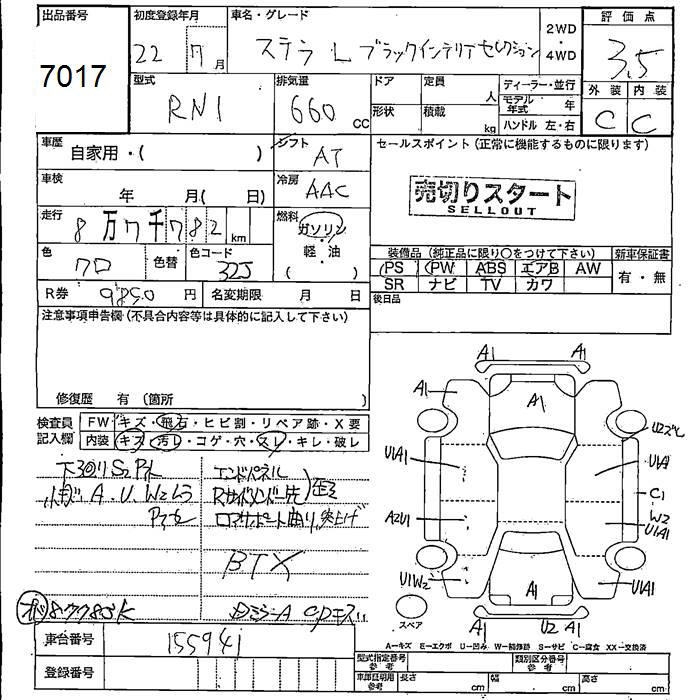 出品番号
7017
初度登録年月
22 7月
車名・グレード
ステラ L ブラックインテリアセレクション
2WD
・
4WD
評価点
3.5
外装 内装
C C
型式
RN1
排気量
660 cc
ドア
形状
定員 人
積載 kg
ディーラー・並行
モデル年式 年
ハンドル 左・右
車歴
自家用・( )
シフト
AT
セールスポイント (正常に機能するものに限ります)
車検
年 月( 日)
冷房
AAC
売切りスタート
SELLOUT
走行
8万7千782km
燃料
ガソリン
・
軽・油
( )
色
クロ
色替
色コード
32J
装備品 (純正品に限り○をつけて下さい)
新車保証書
PS PW ABS エアB AW
SR ナビ TV カワ
有・無
R券 9850円
名変期限 月 日
後日品
注意事項申告欄(不具合内容等は具体的に記入して下さい)
修復歴 有 (箇所 )
検査員
記入欄
FW キズ・飛石・ヒビ割・リペア跡・X要
内装 キズ・汚レ・コゲ・穴・スレ・キレ・破レ
下回りS.P化
A.U.W2
エンドパネル
Rサイドメンバー先
歪
コアサポート曲り,突上げ
BTX
A1 A1
A1
A1
U2ズレ
U1A1
U1A1
C1
W2
A2U1
U1A1
U1W2
A1
U1A1
A1 U2 A1
スペア
A-キズ E-エクボ U-凹み W-補修跡 S-サビ C-腐食 XX-交換済
車台番号
155941
登録番号
型式指定番号
参考
類別区分番号
参考
車庫証明用
参考
長さ cm
幅 cm
高さ cm